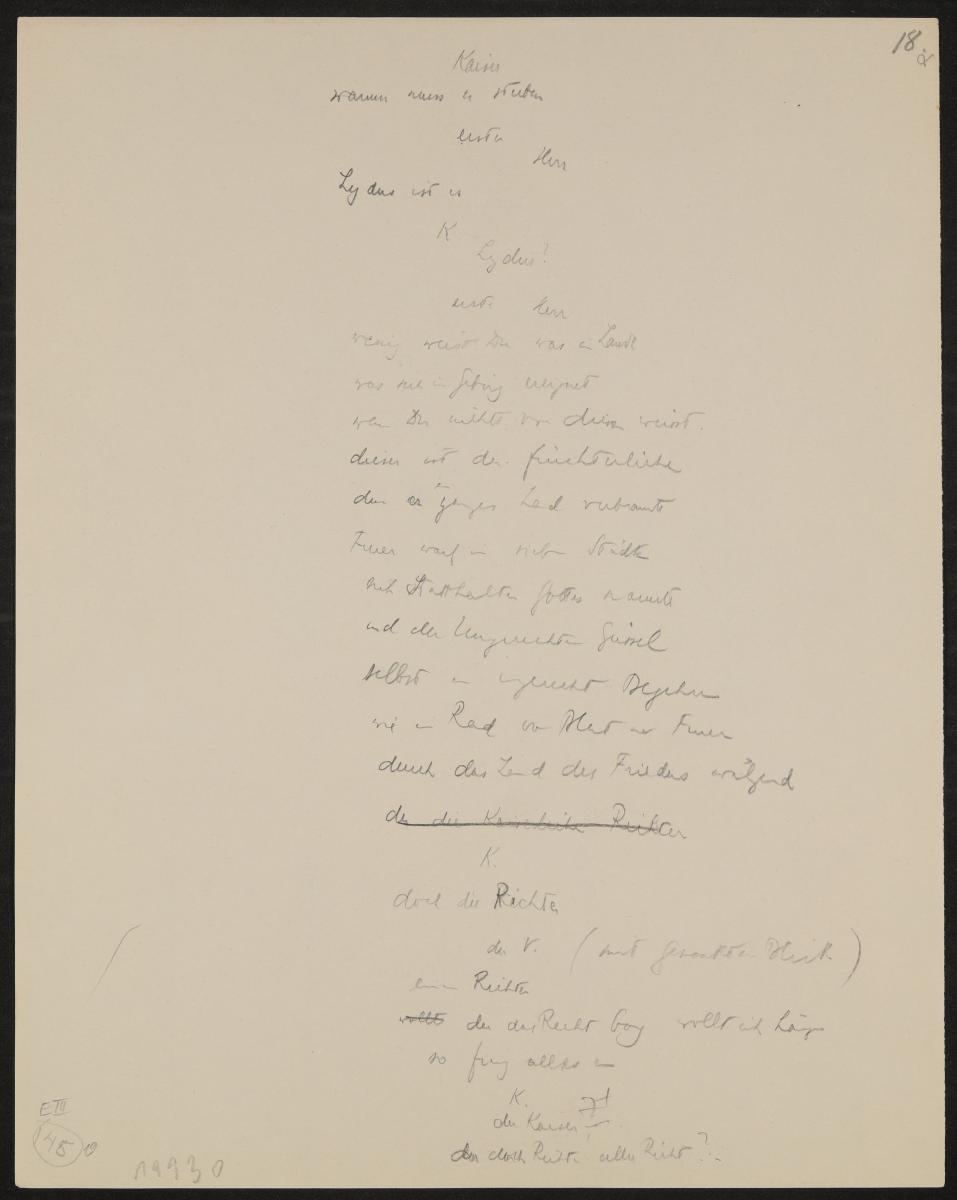 18
Kaiser
warum muss er sterben
erster
Herr
Lydus ist es
K
Lydus?
erster Herr
wenig weisst Du was im Lande
was sich im Gebirg ereignet
wenn Du nichts von diesem weisst.
dieser ist der fürchterliche
der ein ganzes Land verbrannte
Feuer warf in sieben Städte
sich Statthalter Gottes nannte
und der Ungerechten Geissel
selbst ein ungerecht Begehren
wie ein Rad von Blut und Feuer
durch das Land des Friedens wälzend
der die Kaiserlichen Richter
K.
doch die Richter
der V. (mit gesenktem Blick)
einen Richter
wollt der das Recht bog wollt ich hängen
so fing alles an
K.
der Kaiser
der doch Richter aller Richter?
E III
45
19930